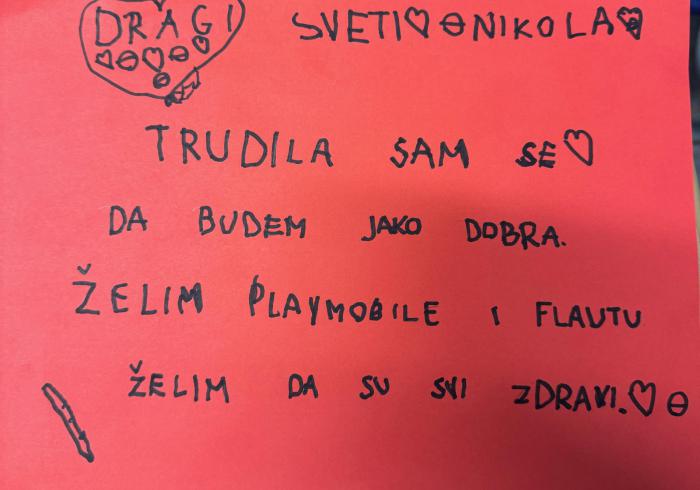 DRAGI SVETI NIKOLA
TRUDILA SAM SE
DA BUDEM JAKO DOBRA.
ŽELIM PLAYMOBILE I FLAUTU
ŽELIM DA SU SVI ZDRAVI.